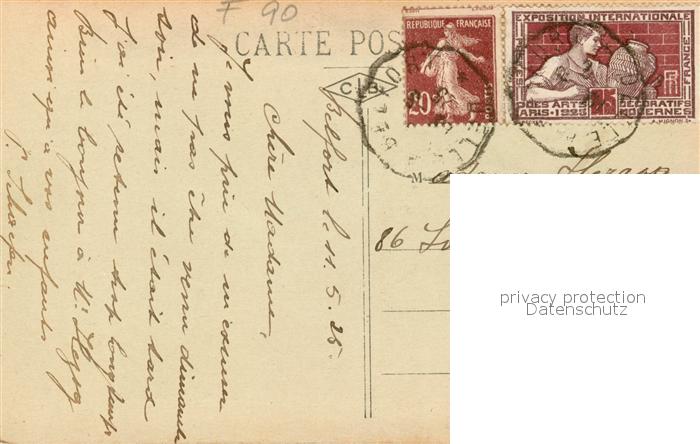 F 90
CARTE POS
RÉPUBLIQUE FRANÇAISE
20c
POSTES
EXPOSITION INTERNATIONALE
DES ARTS DÉCORATIFS
PARIS-1925 MODERNES
75
RF
C B
BELFORT
Belfort le 11. 5. 25.
Chère Madame,
Je vous prie de m'excuser
de ne pas être venu dimanche
soir, mais il était tard
J'ai été retenu trop longtemps
Bien le bonjour à Mr Herzog
ainsi qu'à vos enfants
Herzog
86
privacy protection
Datenschutz